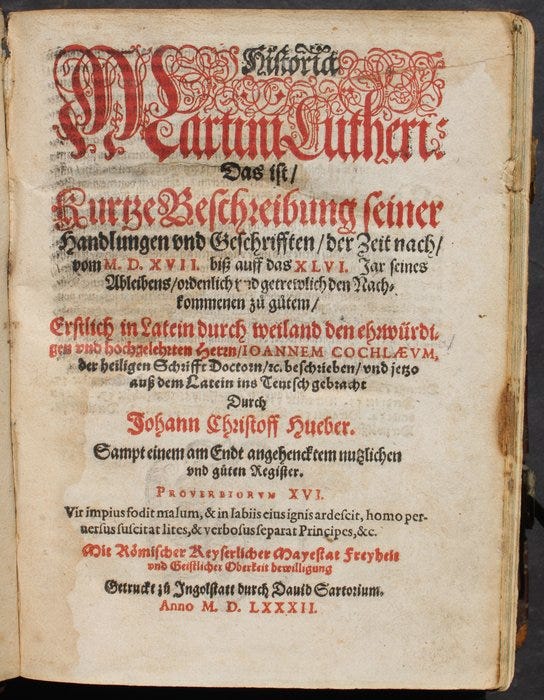 Historia
Martini Lutheri:
Das ist/
Kurtze Beschreibung seiner
Handlungen vnd Geschrifften/der Zeit nach/
vom M. D. XVII. biß auff das XLVI. Jar seines
Ableibens/ordenlich vnd getrewlich den Nach-
kommenen zů gůtem/
Erstlich in Latein durch weiland den ehrwürdi-
gen vnd hochgelehrten Herrn/IOANNEM COCHLÆVM,
der heiligen Schrifft Doctorn/ꝛc. beschrieben/vnd jetzo
auß dem Latein ins Teutsch gebracht
Durch
Johann Christoff Hueber.
Sampt einem am Endt angehencktem nutzlichen
vnd gůten Register.
PROVERBIORVM XVI.
Vir impius fodit malum, & in labiis eius ignis ardescit, homo per-
uersus suscitat lites, & verbosus separat Principes, &c.
Mit Römischer Keyserlicher Mayestat Freyheit
vnd Geistlicher Oberkeit bewilligung
Getruckt zů Jngolstatt durch Dauid Sartorium.
Anno M. D. LXXXII.